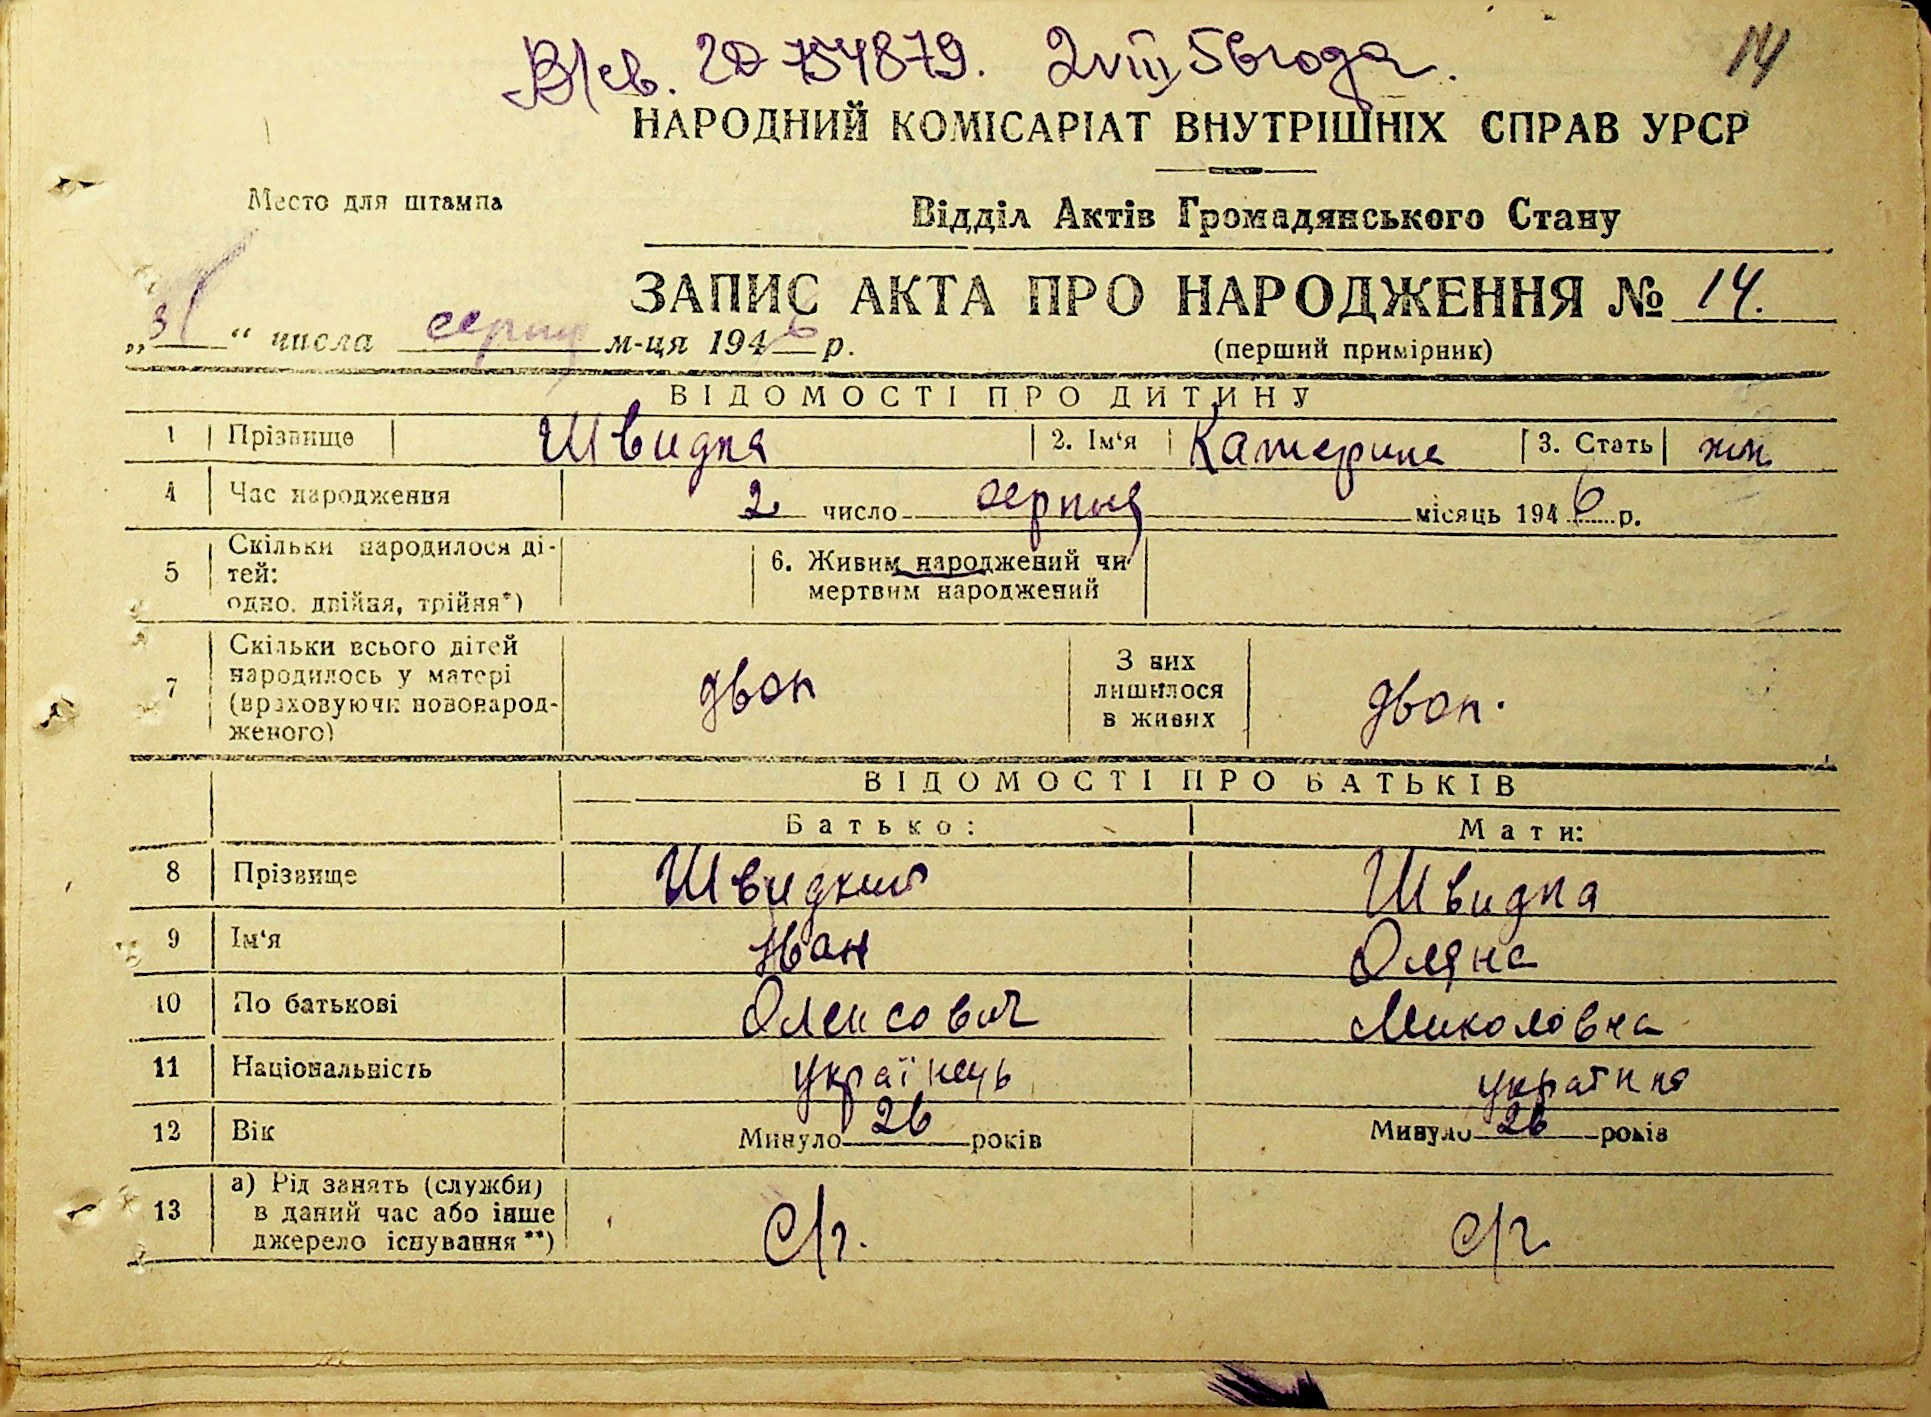 В/св. 754879. 2 VIII 56 года.
14
НАРОДНИЙ КОМІСАРІАТ ВНУТРІШНІХ СПРАВ УРСР
Место для штампа
Відділ Актів Громадянського Стану
ЗАПИС АКТА ПРО НАРОДЖЕННЯ № 14.
„31“ числа серпня м-ця 1946 р.
(перший примірник)
ВІДОМОСТІ ПРО ДИТИНУ
1 Прізвище Швидка 2. Ім‘я Катерина 3. Стать жін
4 Час народження 2 число серпня місяць 1946 р.
5 Скільки народилося ді-
тей:
одно, двійня, трійня*)
6. Живим народжений чи
мертвим народжений
7 Скільки всього дітей
народилось у матері
(враховуючи новонарод-
женого)
двоє
З них
лишилося
в живих
двоє.
ВІДОМОСТІ ПРО БАТЬКІВ
Батько: Мати:
8 Прізвище Швидкий Швидка
9 Ім‘я Іван Оляна
10 По батькові Олексович Миколовна
11 Національність українець українка
12 Вік Минуло 26 років Минуло 26 років
13 а) Рід занять (служби)
в даний час або інше
джерело існування**)
С/г. с/г.